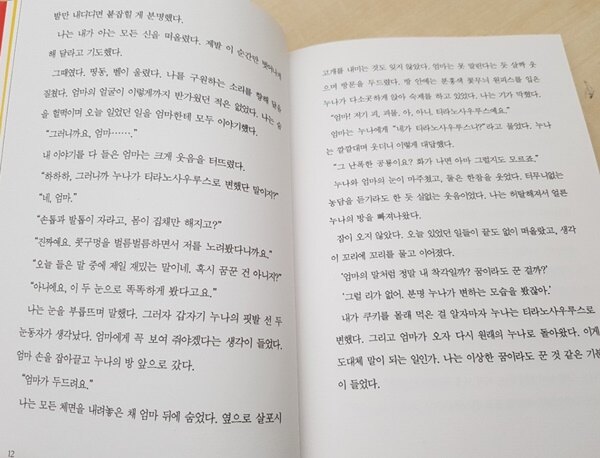 발만 내디디면 붙잡힐 게 분명했다.
나는 내가 아는 모든 신을 떠올렸다. 제발 이 순간만
해 달라고 기도했다.
그때였다. 띵동, 벨이 울렸다. 나를 구원하는 소리를 향해
질렀다. 엄마의 얼굴이 이렇게까지 반가웠던 적은 없었다. 나는 숨
을 헐떡이며 오늘 일었던 일을 엄마한테 모두 이야기했다.
“그러니까요, 엄마…….”
내 이야기를 다 들은 엄마는 크게 웃음을 터뜨렸다.
“하하하, 그러니까 누나가 티라노사우루스로 변했단 말이지?”
“네, 엄마.”
“손톱과 발톱이 자라고, 몸이 집채만 해지고?”
“진짜예요. 콧구멍을 벌름벌름하면서 저를 노려봤다니까요.”
“오늘 들은 말 중에 제일 재밌는 말이네. 혹시 꿈꾼 건 아니지?”
“아니에요, 이 두 눈으로 똑똑하게 봤다고요.”
나는 눈을 부릅뜨며 말했다. 그러자 갑자기 누나의 핏발 선 두
눈동자가 생각났다. 엄마에게 꼭 보여 줘야겠다는 생각이 들었다.
엄마 손을 잡아끌고 누나의 방 앞으로 갔다.
“엄마가 두드려요.”
나는 모든 체면을 내려놓은 채 엄마 뒤에 숨었다. 옆으로 살포시
12
고개를 내미는 것도 잊지 않았다. 엄마는 못 말린다는 듯 살짝 웃
으며 방문을 두드렸다. 방 안에는 분홍색 꽃무늬 원피스를 입은
누나가 다소곳하게 앉아 숙제를 하고 있었다. 나는 기가 막혔다.
“엄마! 저기 괴, 괴물. 아, 아니, 티라노사우루스예요.”
엄마는 누나에게 “네가 티라노사우루스니?”라고 물었다. 누나
는 깔깔대며 웃더니 이렇게 대답했다.
“그 난폭한 공룡이요? 화가 나면 아마 그럴지도 모르죠.”
누나와 엄마의 눈이 마주쳤고, 둘은 한참을 웃었다. 터무니없는
농담을 듣기라도 한 듯 실없는 웃음이었다. 나는 허탈해져서 얼른
누나의 방을 빠져나왔다.
잠이 오지 않았다. 오늘 있었던 일들이 끝도 없이 떠올랐고, 생각
이 꼬리에 꼬리를 물고 이어졌다.
‘엄마의 말처럼 정말 내 착각일까? 꿈이라도 꾼 걸까?’
‘그럴 리가 없어. 분명 누나가 변하는 모습을 봤잖아.’
내가 쿠키를 몰래 먹은 걸 알자마자 누나는 티라노사우루스로
변했다. 그리고 엄마가 오자 다시 원래의 누나로 돌아왔다. 이게
도대체 말이 되는 일인가. 나는 이상한 꿈이라도 꾼 것 같은 기분
이 들었다.